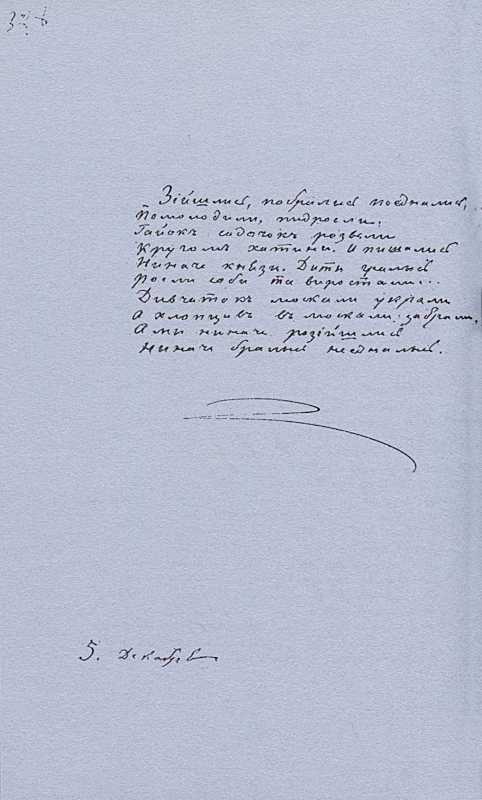 Зійшлись, побрались поеднались,
Помолодили, пидросли.
Гайокъ садочокъ розвели
Кругомъ хатини. И пишались
Ниначе князи. Диты грались
Росли соби та виростали...
Дивчатокъ москали украли
А хлопцивъ въ москали забрали,
А ми ниначе розійшлись
Ниначе брались неєднались.
5. Декабря